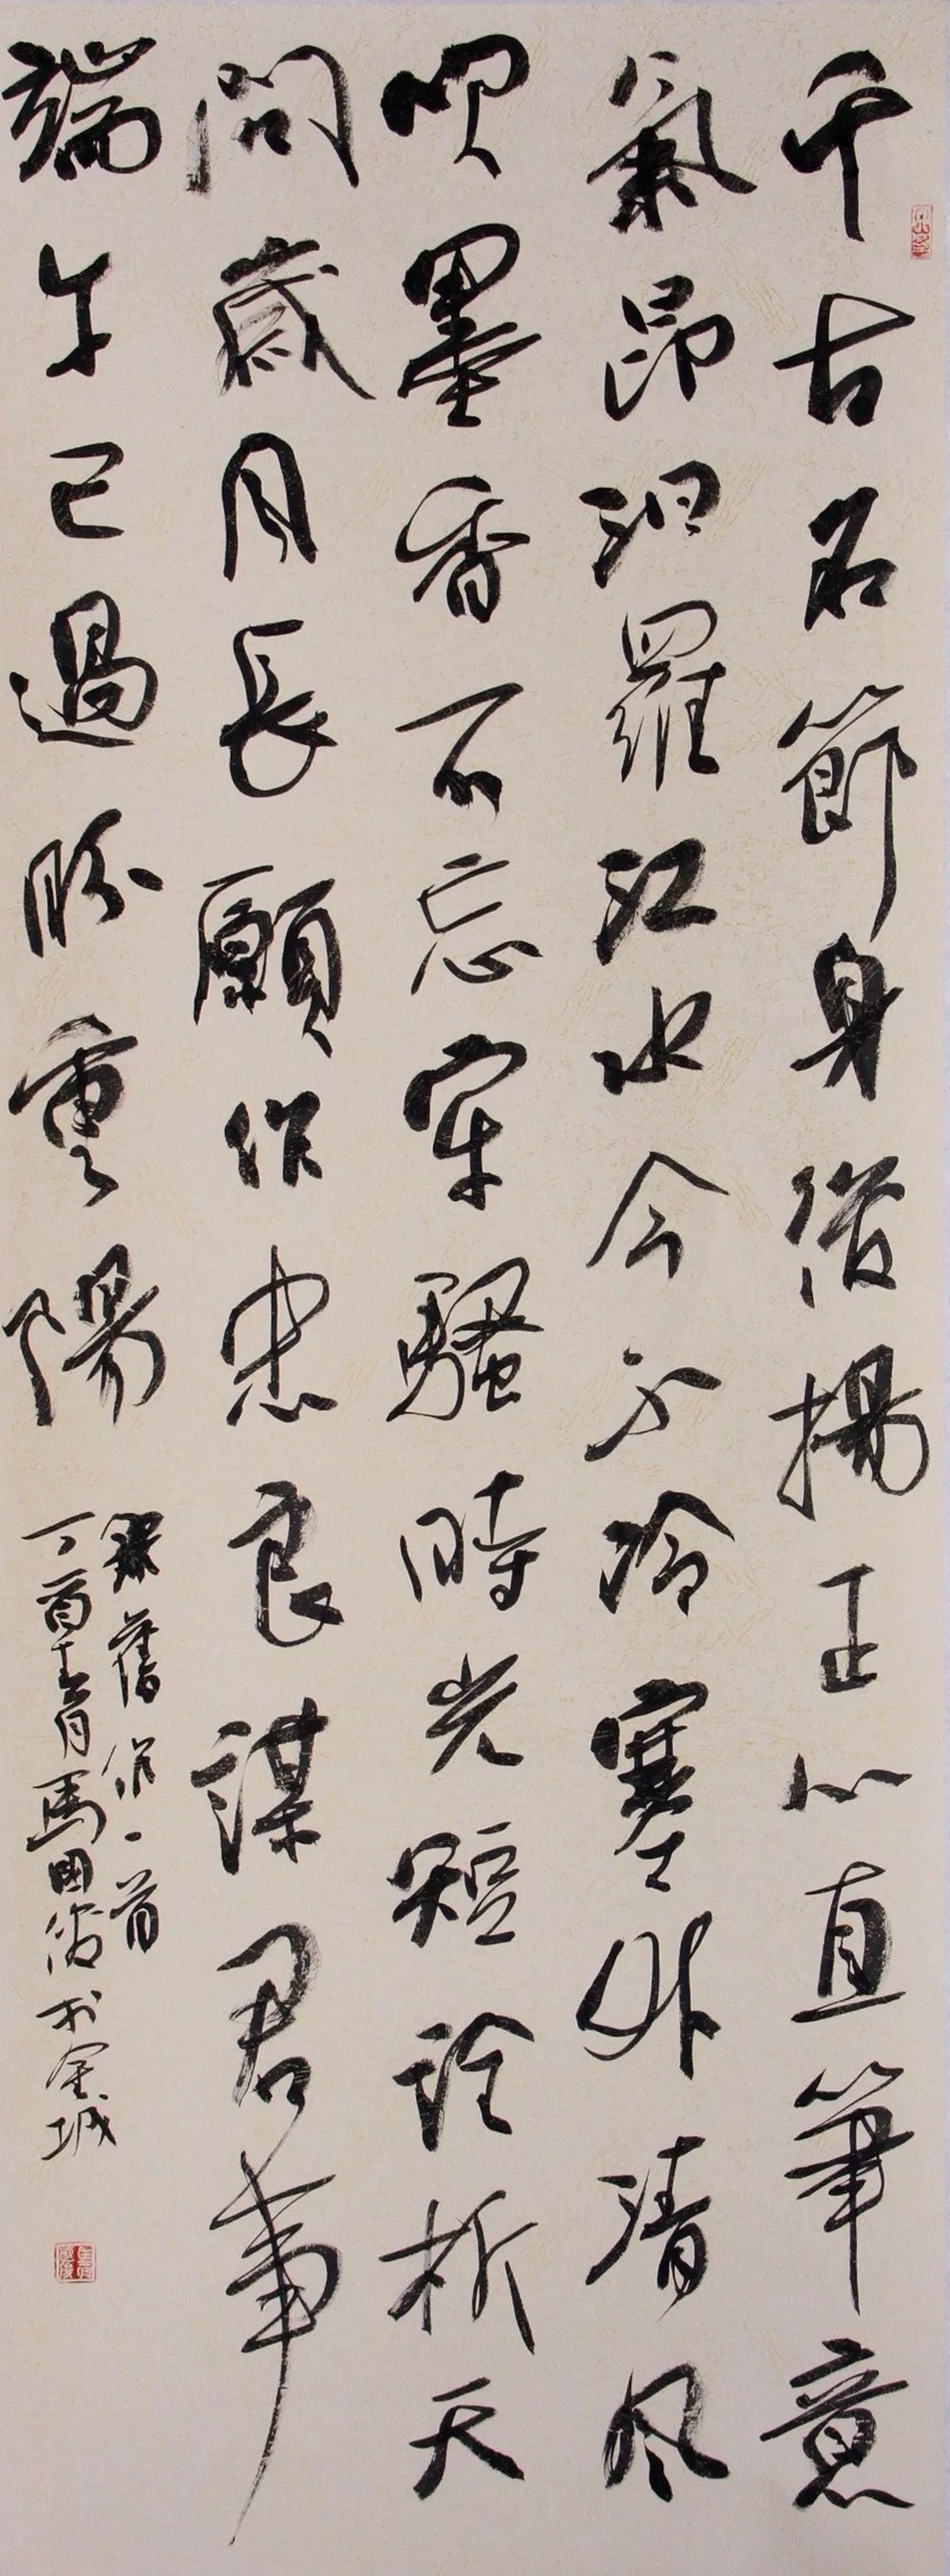 千古名節身後揚正心直筆意
氣昂汨羅江水今不冷塞外清風
吹墨香不忘牢騷時光短詮析天
問歲月長願作忠良謀君事
端午已過盼重陽
錄舊作一首
丁酉月馬國俊於金城